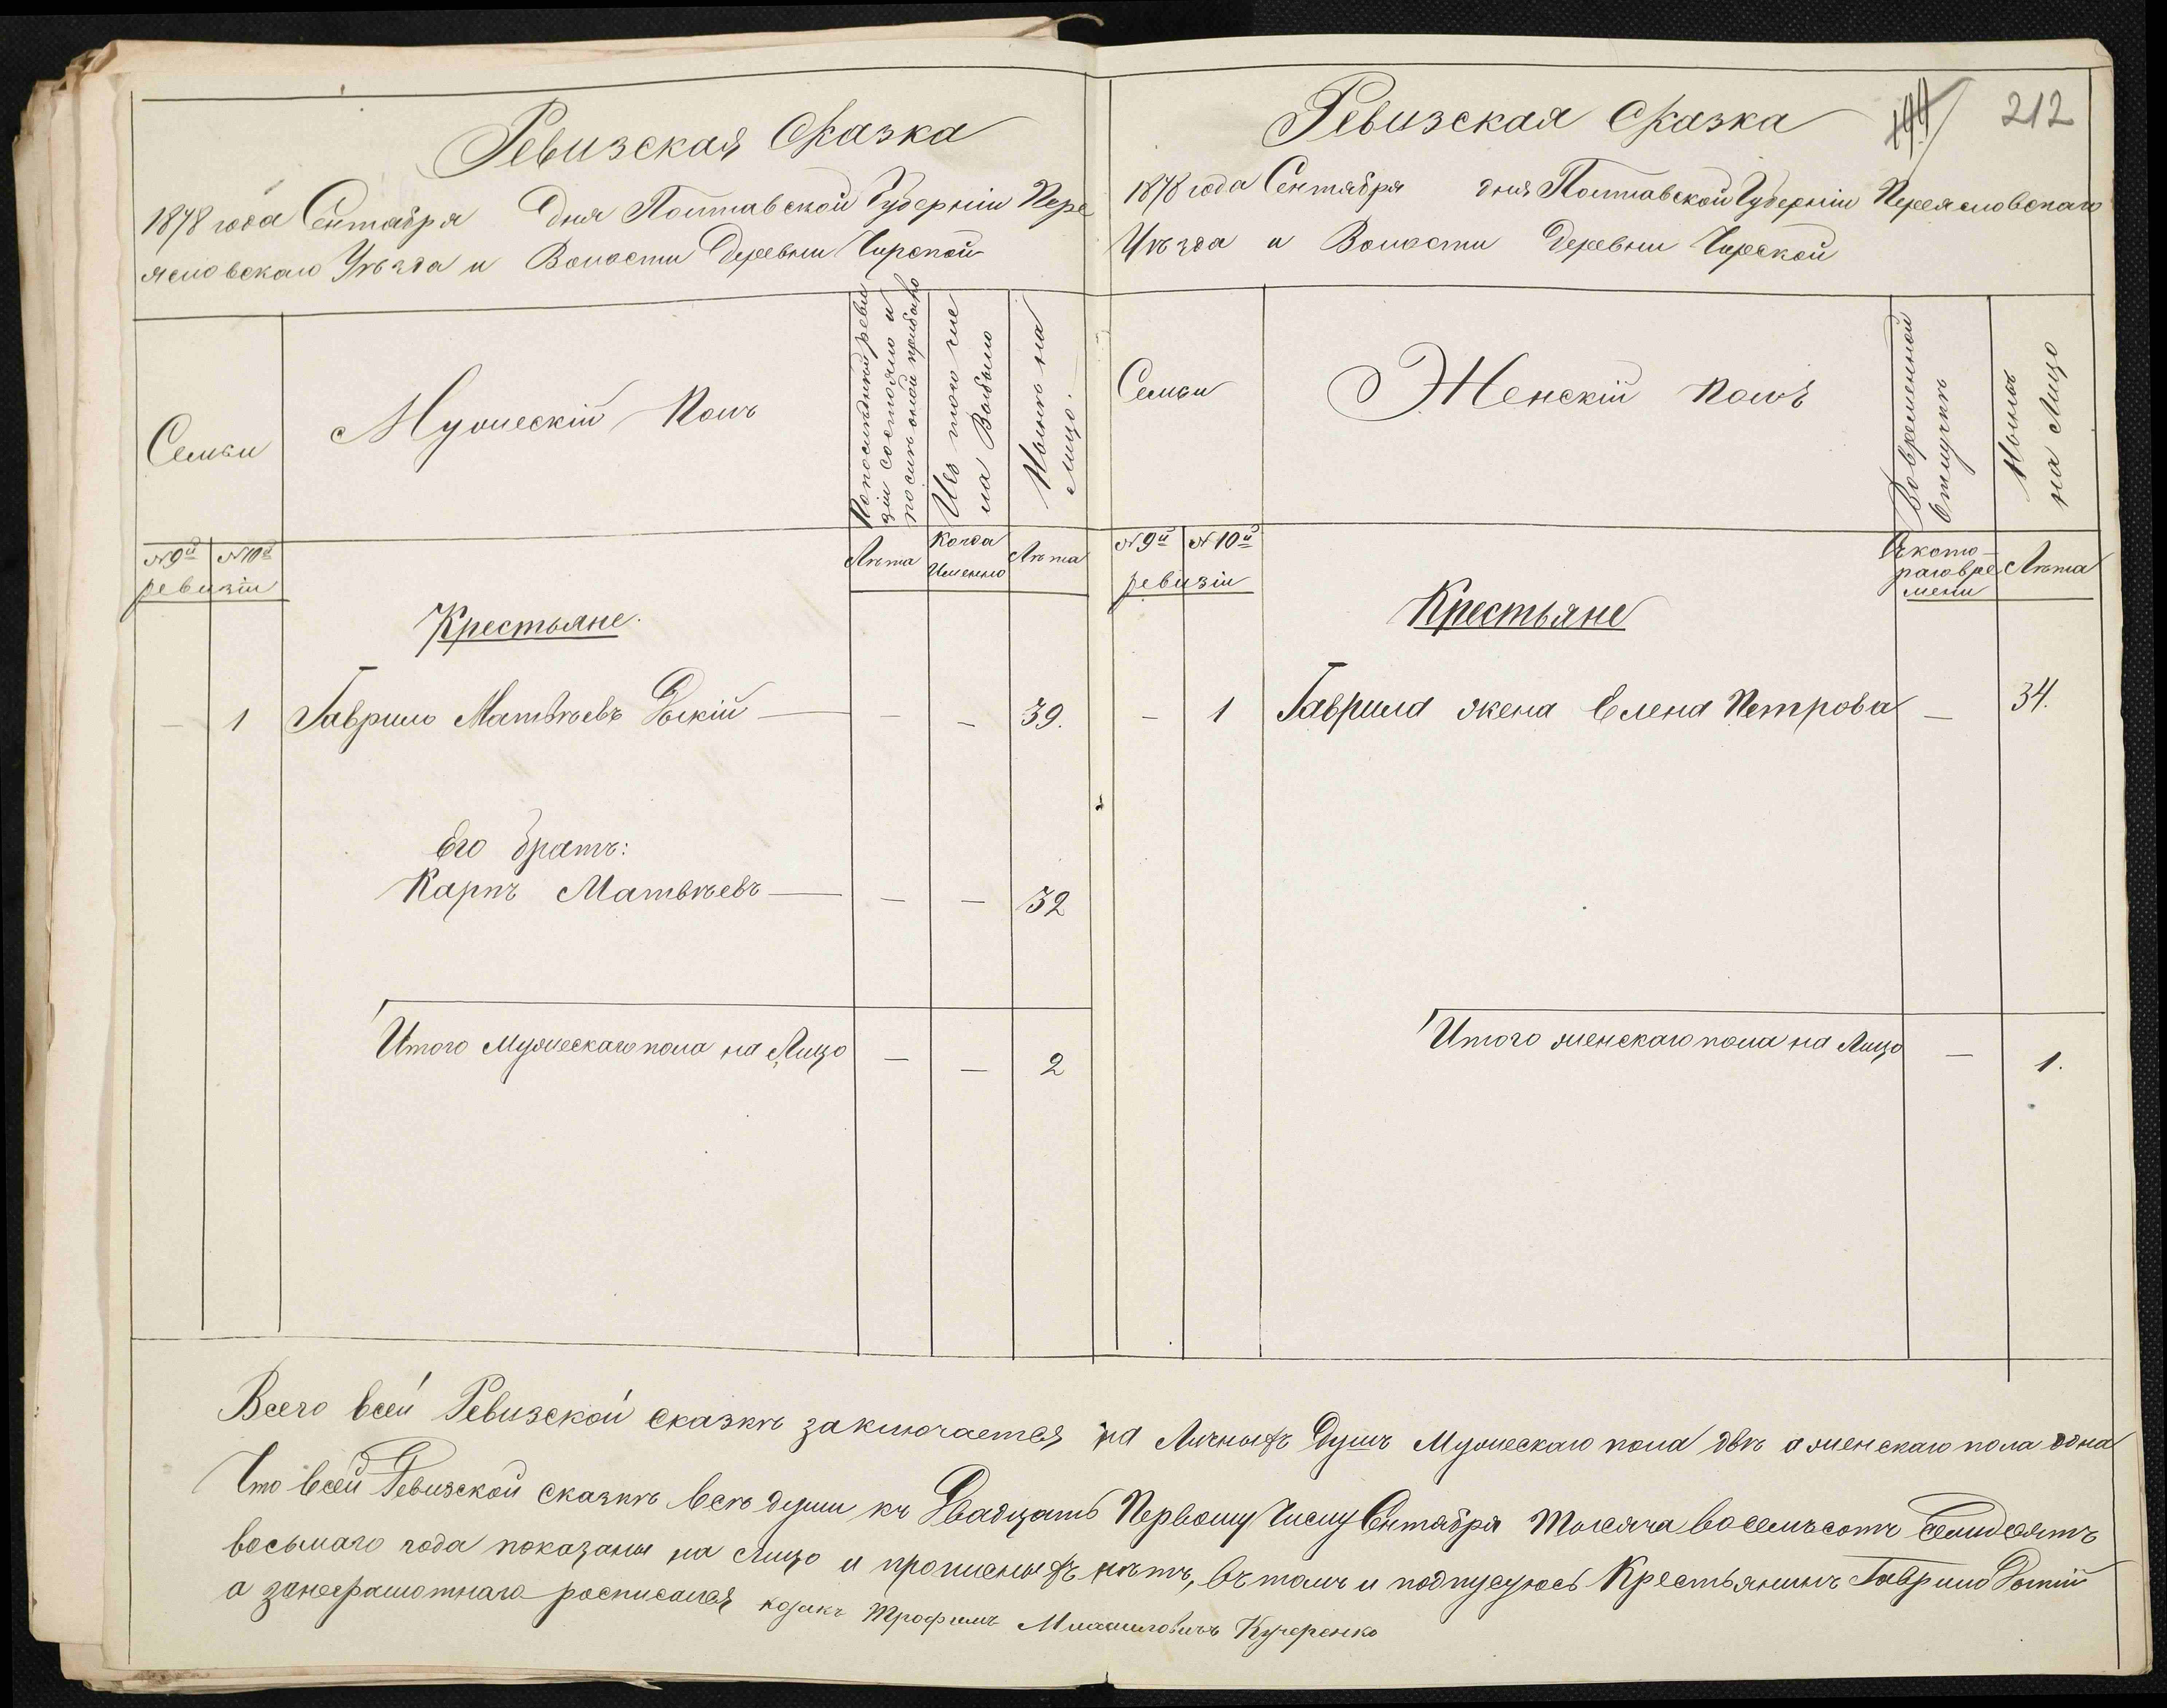 Ревизская Сказка
1878 года Сентября дня Полтавской Губерніи Пере
яславскаго Уѣзда и Волости Деревни Чирской
Семьи
Мужескій Полъ
По последнней реви
зіи состояло и
после оной прибыло
Изъ того чис
ла Выбыло
Нынѣ на
Лицо.
№ 9й № 10й
ревизіи
Лѣта
Когда
Именно
Лѣта
Крестьяне.
— 1 Гаврило Матвѣевъ — — — 39.
Его братъ:
Карпъ Матвѣевъ — — — 32
Итого Мужескаго пола на Лицо — — 2
Ревизская Сказка
212
1878 года Сентября дня Полтавской Губерніи Переясловскаго
Уѣзда и Волости Деревни Чирской
Семьи
Женскій полъ
Во временной
отлучкѣ
Нынѣ
на Лицо
№ 9й № 10й
ревизіи
Съ кото-
раго вре
мени
Лѣта
Крестьяне
— 1 Гаврила жена Елена Петрова — 34.
Итого женскаго пола на Лицо — 1.
Всего всей Ревизской сказкѣ заключается на Личныхъ душъ Мужескаго пола двѣ а женскаго пола одна
Что всей Ревизской сказкѣ всѣ души къ Двадцать Первому Числу Сентября Тысяча восемьсотъ Семидесятъ
восьмаго года показаны на лицо и прописныхъ нѣтъ, въ томъ и подписуюсь Крестьянинъ Гаврило
а занеграмотнаго росписался козакъ Трофимъ Михаиловичъ Кучеренко